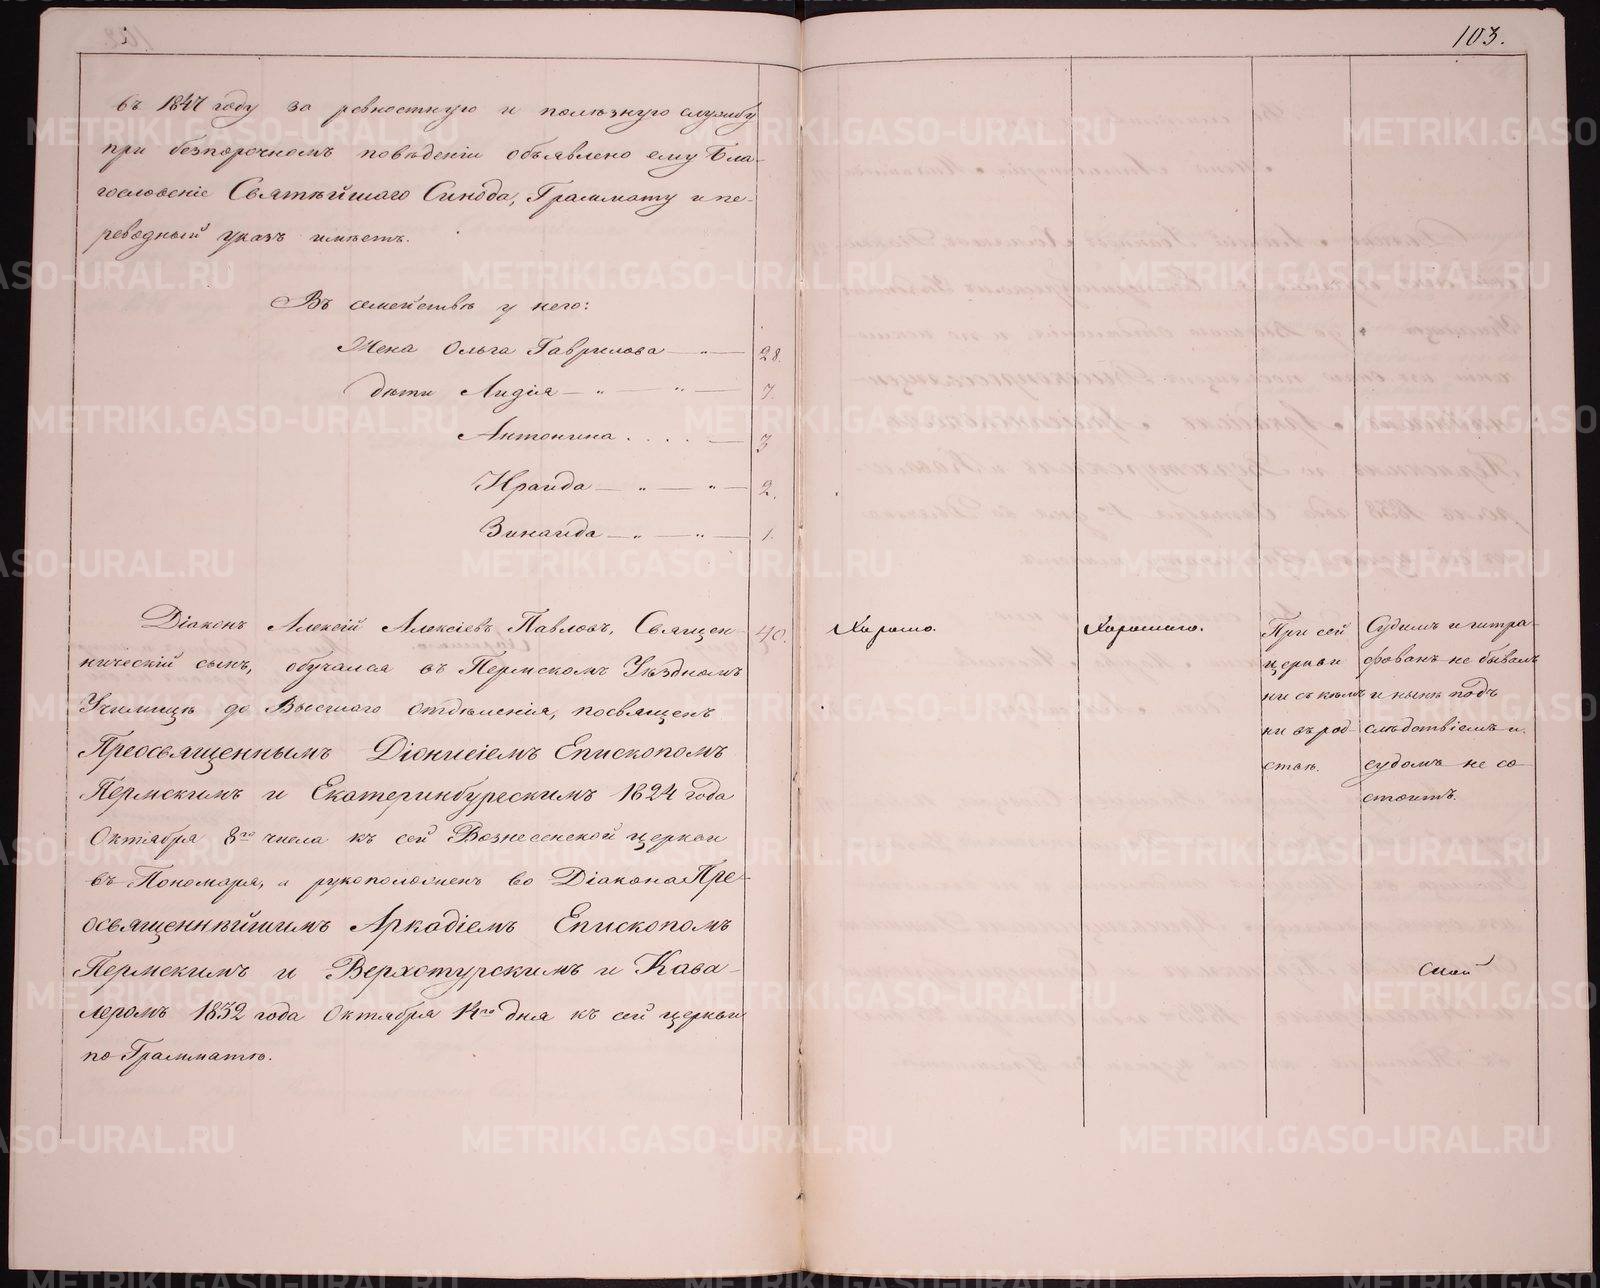 103.
въ 1847 году за ревностную и полѣзную службу
при безпорочномъ повѣденіи объявлено ему Бла-
гословеніе Святѣйшаго Синода, Граммату и пе-
реводный указъ имѣетъ.
Въ семействѣ у него:
Жена Ольга Гаврилова — „ — 28.
дѣти Лидія — „ — „ — 7.
Антонина . . . . — 3
Ираида — „ — „ — 2.
Зинаида — „ — „ — 1.
Діаконъ Алексій Алексіевъ Павловъ, Священ-
ническій сынъ, обучался въ Пермскомъ Уѣздномъ
Училищѣ до Высшаго отдѣленія, посвященъ
Преосвященнымъ Діонисіемъ Епископомъ
Пермскимъ и Екатеринбургскимъ 1824 года
Октября 8го числа къ сей Вознесенской церкви
въ Пономаря, а рукоположенъ во Діакона Пре-
освященнѣйшимъ Аркадіемъ Епископомъ
Пермскимъ и Верхотурскимъ и Кава-
леромъ 1832 года Октября 14го дня къ сей церкви
по Грамматѣ.
40.
Хорошо.
Хорошаго.
При сей
церкви
ни съ кѣмъ
ни въ род-
ствѣ.
Судимъ и штра-
фованъ не бывалъ
и нынѣ подъ
слѣдствіемъ и
судомъ не со-
стоитъ.
METRIKI.GASO-URAL.RU